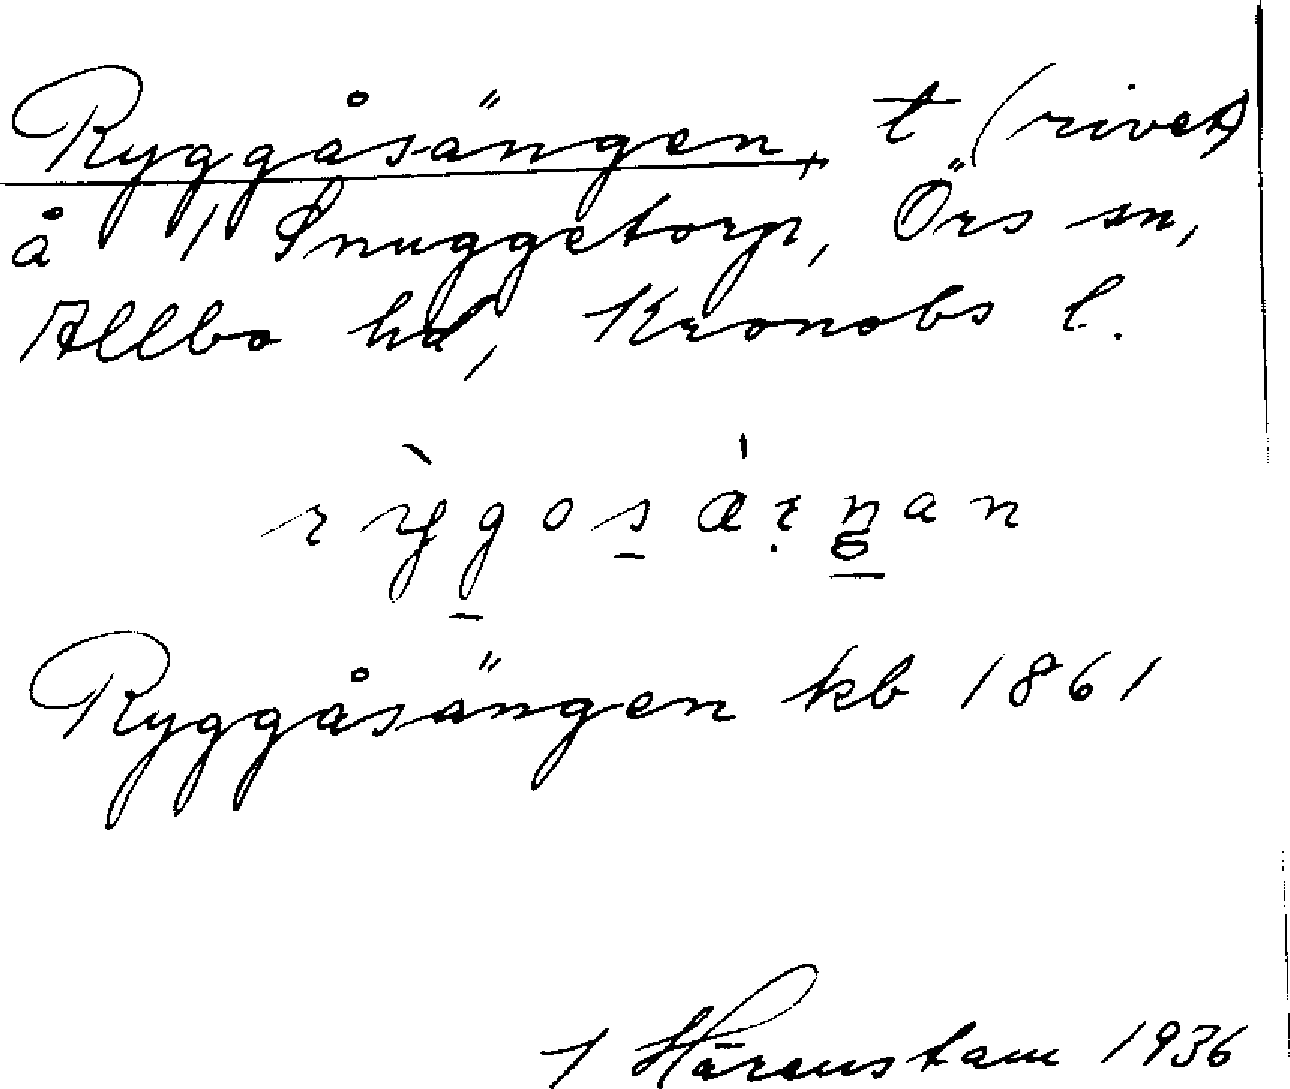 Ryggåsängen, t (rivet)
å 1 Snuggetorp, Örs sn,
Allbo hd, Kronobs l.
Ryggåsängen kb 1861
Härenstam 1936